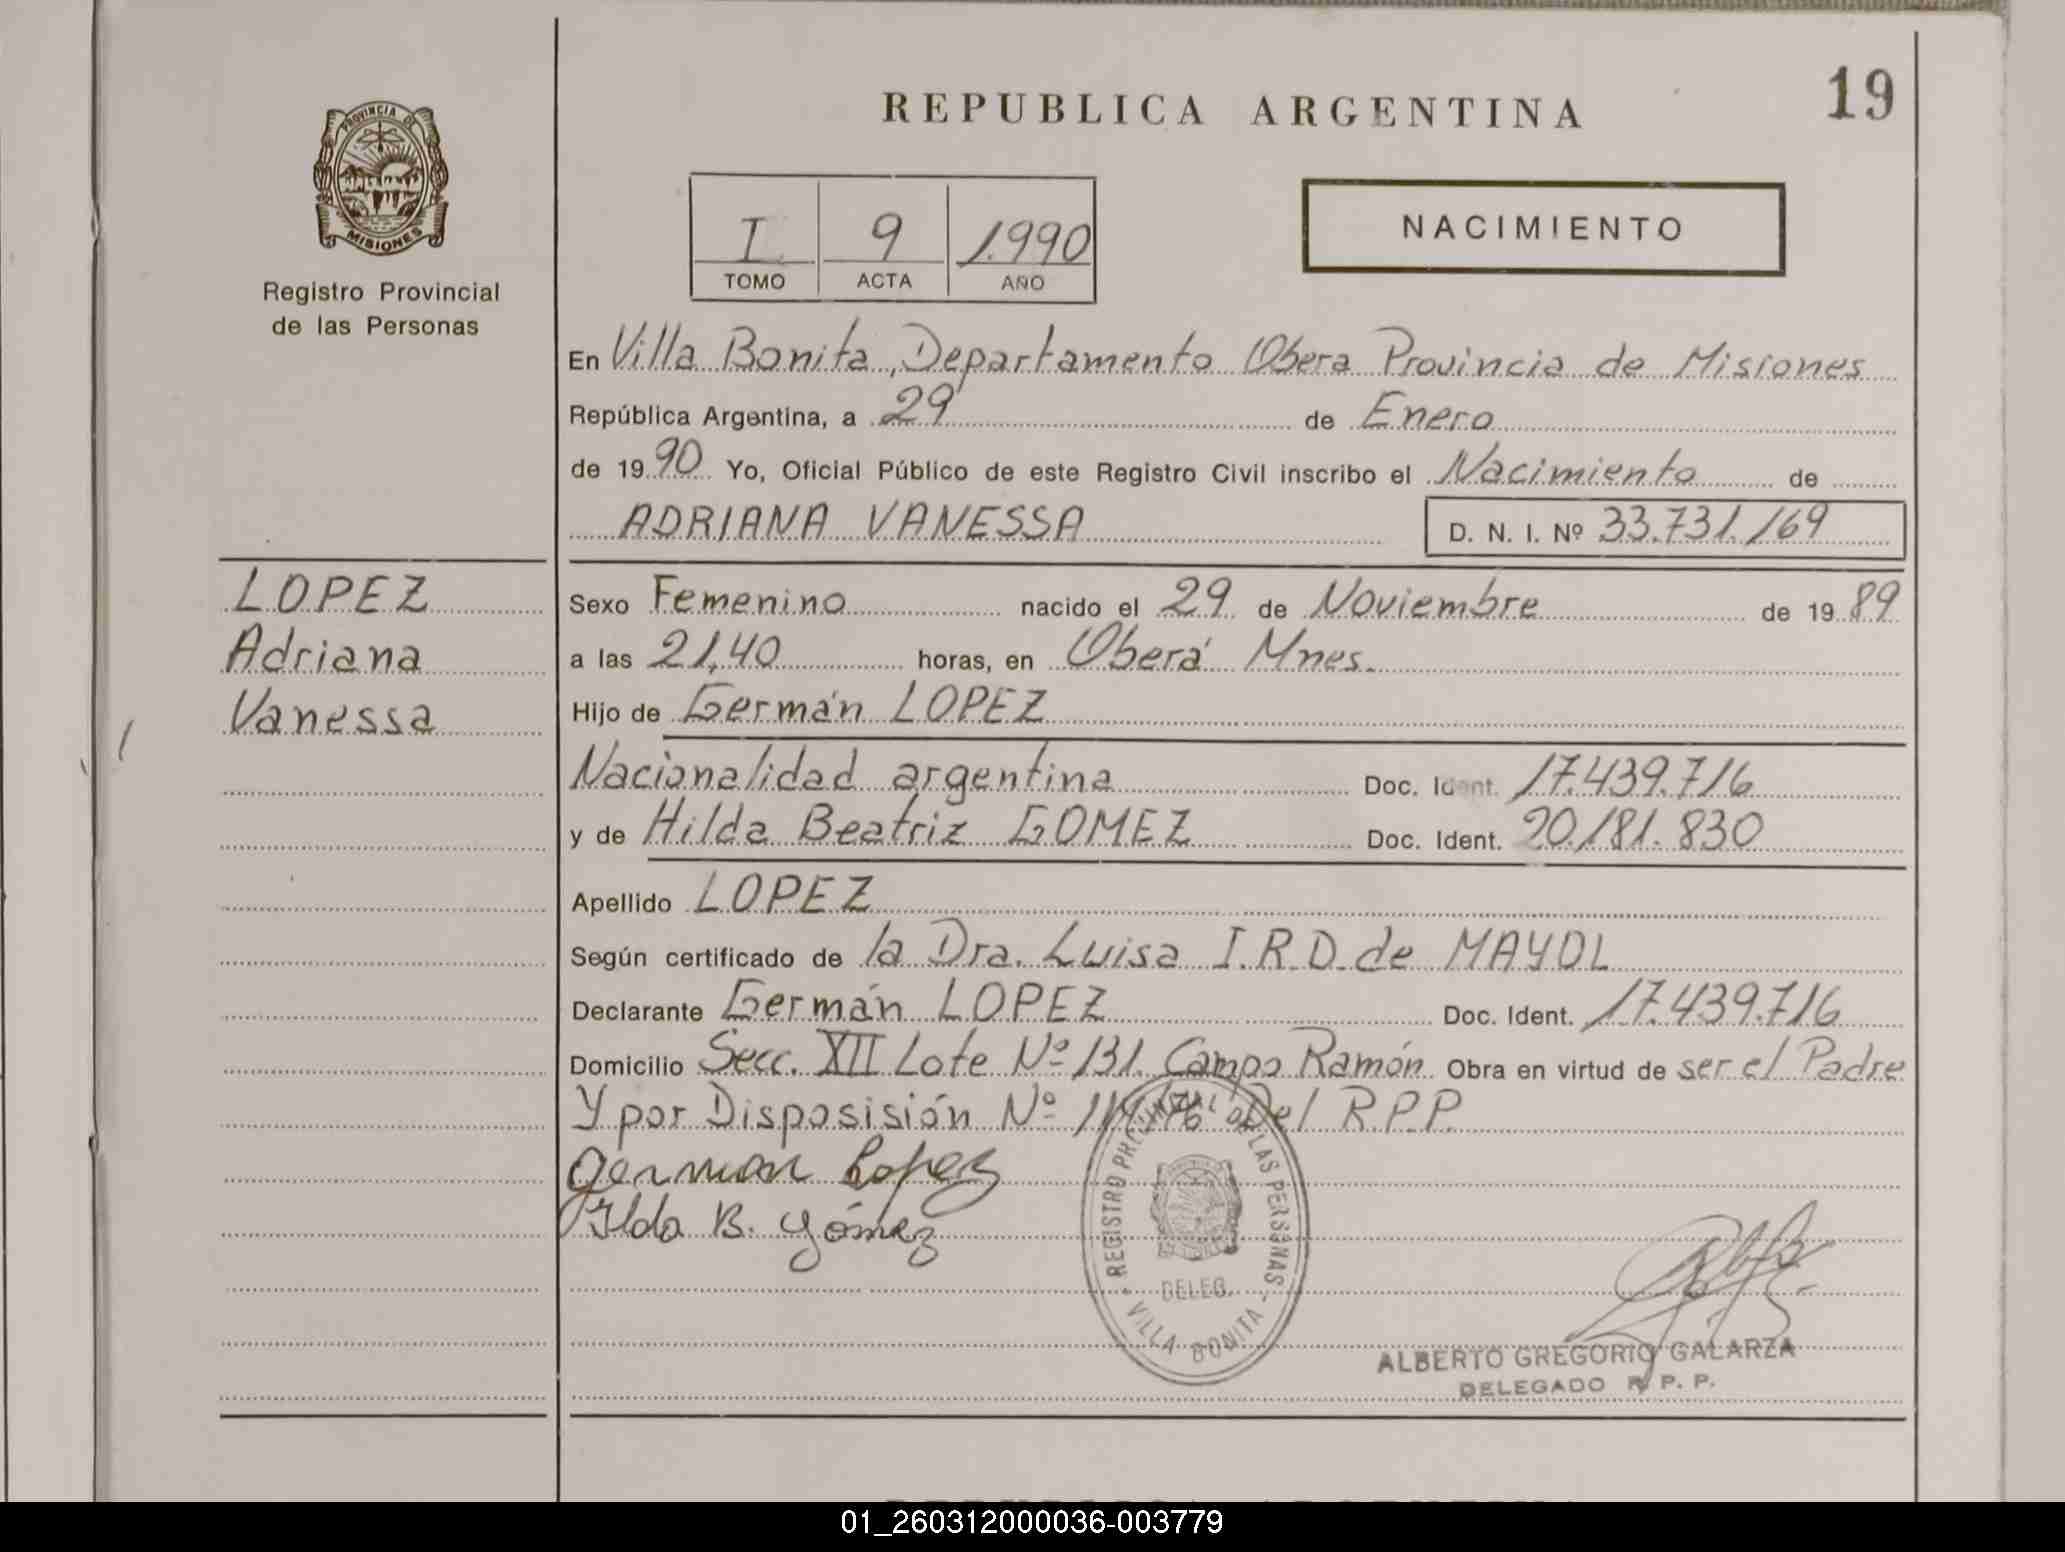 REPUBLICA ARGENTINA
19
PROVINCIA DE
MISIONES
Registro Provincial
de las Personas
I
9
1.990
TOMO
ACTA
AÑO
NACIMIENTO
En Villa Bonita, Departamento Obera Provincia de Misiones
República Argentina, a 29 de Enero
de 1990 Yo, Oficial Público de este Registro Civil inscribo el Nacimiento de
ADRIANA VANESSA
D. N. I. Nº 33.731.169
LOPEZ
Adriana
Vanessa
Sexo Femenino nacido el 29 de Noviembre de 1989
a las 21,40 horas, en Oberá Mnes.
Hijo de Germán LOPEZ
Nacionalidad argentina Doc. Ident. 17.439.716
y de Hilda Beatriz GOMEZ Doc. Ident. 20.181.830
Apellido LOPEZ
Según certificado de la Dra. Luisa I.R.D. de MAYOL
Declarante Germán LOPEZ Doc. Ident. 17.439.716
Domicilio Secc. XII Lote Nº 131 Campo Ramón Obra en virtud de ser el Padre
Y por Disposisión Nº Del R.P.P.
German Lopez
Ilda B. Gómez
REGISTRO PROVINCIAL DE LAS PERSONAS
DELEG.
VILLA BONITA
ALBERTO GREGORIO GALARZA
DELEGADO R. P. P.
01_260312000036-003779